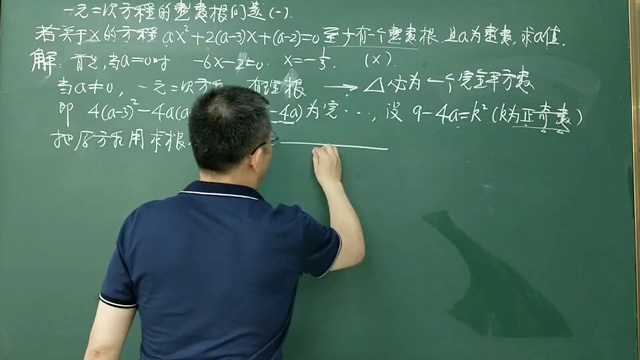 一元二次方程的整数根问题(一).
若关于x的方程 ax²+2(a-3)x+(a-2)=0 至少有一个整数根,且a为整数,求a值.
解: 首先,当a=0时 -6x-2=0. x=-1/3. (×).
当a≠0, 一元二次方 有理根 → △必为一个完全平方数
即 4(a-3)²-4a(a -4a)为完…, 设 9-4a=k²(k为正奇数)
把 方 用求根